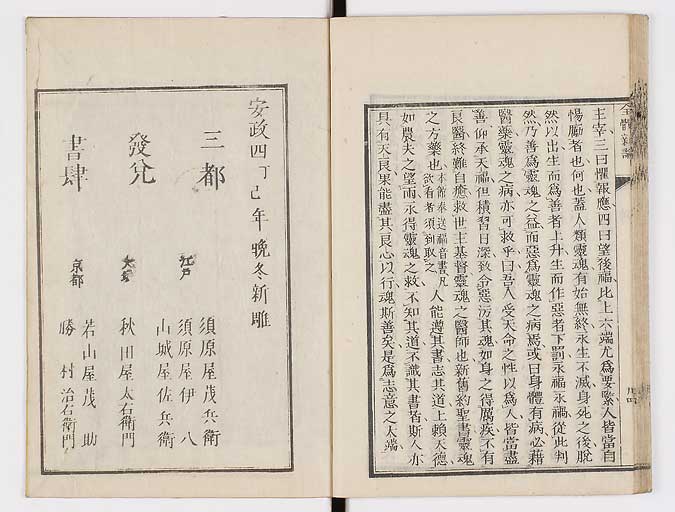 全體新論
主宰三曰懼報應四曰望後福比上六端尤爲要緊人皆當自
惕勵者也何也蓋人類靈魂有始無終永生不滅身死之後脫
然以出生而爲善者上升生而作惡者下罰永福永禍從此判
然乃善爲靈魂之益而惡爲靈魂之病焉或曰身體有病必藉
醫藥靈魂之病亦可救乎曰吾人受天命之性以爲人皆當盡
善仰承天福但積習日深致令惡污其魂如身之得厲疾不有
良醫終難自癒救世主基督靈魂之醫師也新舊約聖書靈魂
之方藥也本館奉送福音書凡欲看者須到取之人能遵其書志其道上賴天德
如農夫之望雨永得靈魂之救不知其道不識其書者斯人亦
具有天良果能盡其良心以行魂斯善矣是爲志意之大端
安政四丁巳年晩冬新雕
三都
發兌
書肆
江戶
須原屋茂兵衛
須原屋伊八
山城屋佐兵衛
秋田屋太右衛門
京都
若山屋茂助
勝村治右衛門